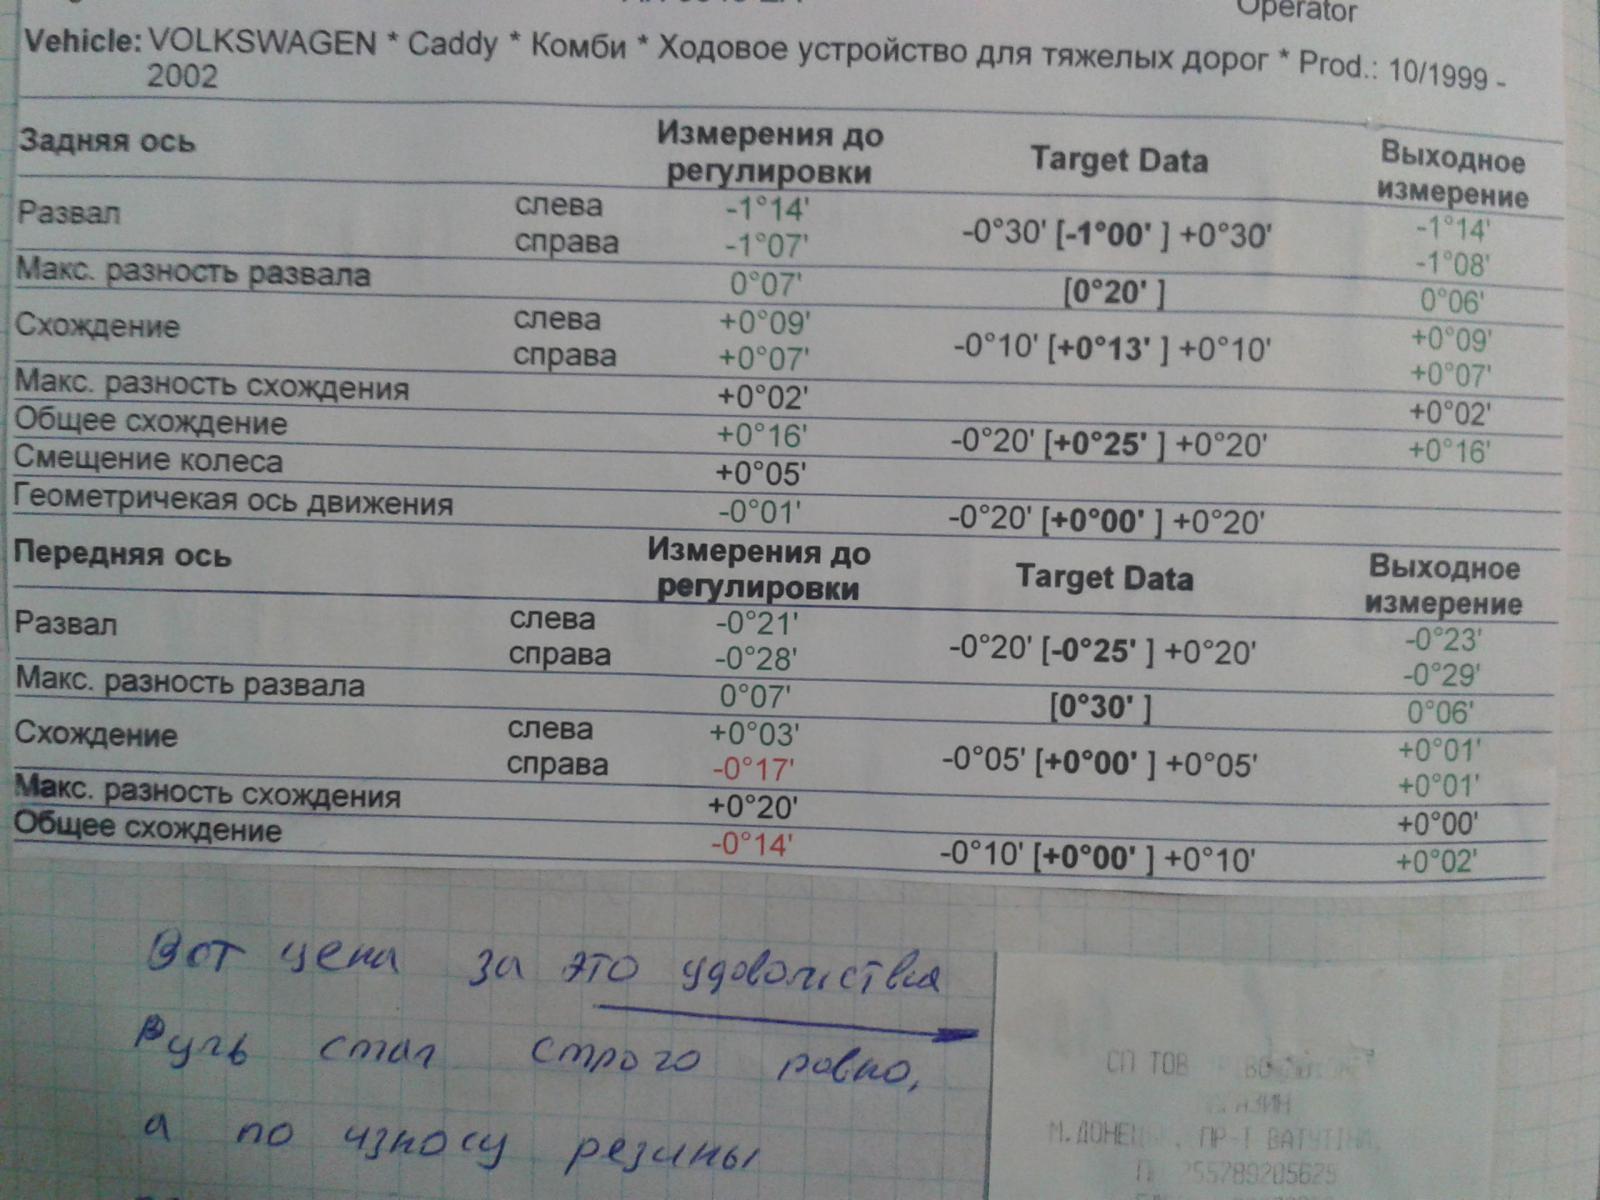 Operator
Vehicle: VOLKSWAGEN * Caddy * Комби * Ходовое устройство для тяжелых дорог * Prod.: 10/1999 -
2002
Задняя ось Измерения до регулировки Target Data Выходное измерение
Развал слева -1°14' -0°30' [-1°00' ] +0°30' -1°14'
справа -1°07' -1°08'
Макс. разность развала 0°07' [0°20' ] 0°06'
Схождение слева +0°09' -0°10' [+0°13' ] +0°10' +0°09'
справа +0°07' +0°07'
Макс. разность схождения +0°02' +0°02'
Общее схождение +0°16' -0°20' [+0°25' ] +0°20' +0°16'
Смещение колеса +0°05'
Геометричекая ось движения -0°01' -0°20' [+0°00' ] +0°20'
Передняя ось Измерения до регулировки Target Data Выходное измерение
Развал слева -0°21' -0°20' [-0°25' ] +0°20' -0°23'
справа -0°28' -0°29'
Макс. разность развала 0°07' [0°30' ] 0°06'
Схождение слева +0°03' -0°05' [+0°00' ] +0°05' +0°01'
справа -0°17' +0°01'
Макс. разность схождения +0°20' +0°00'
Общее схождение -0°14' -0°10' [+0°00' ] +0°10' +0°02'
Вот цена за это удовольствия
Руль стал строго ровно,
а по износу резины
СП ТОВ
ПР-Т ВАТУТІНА,